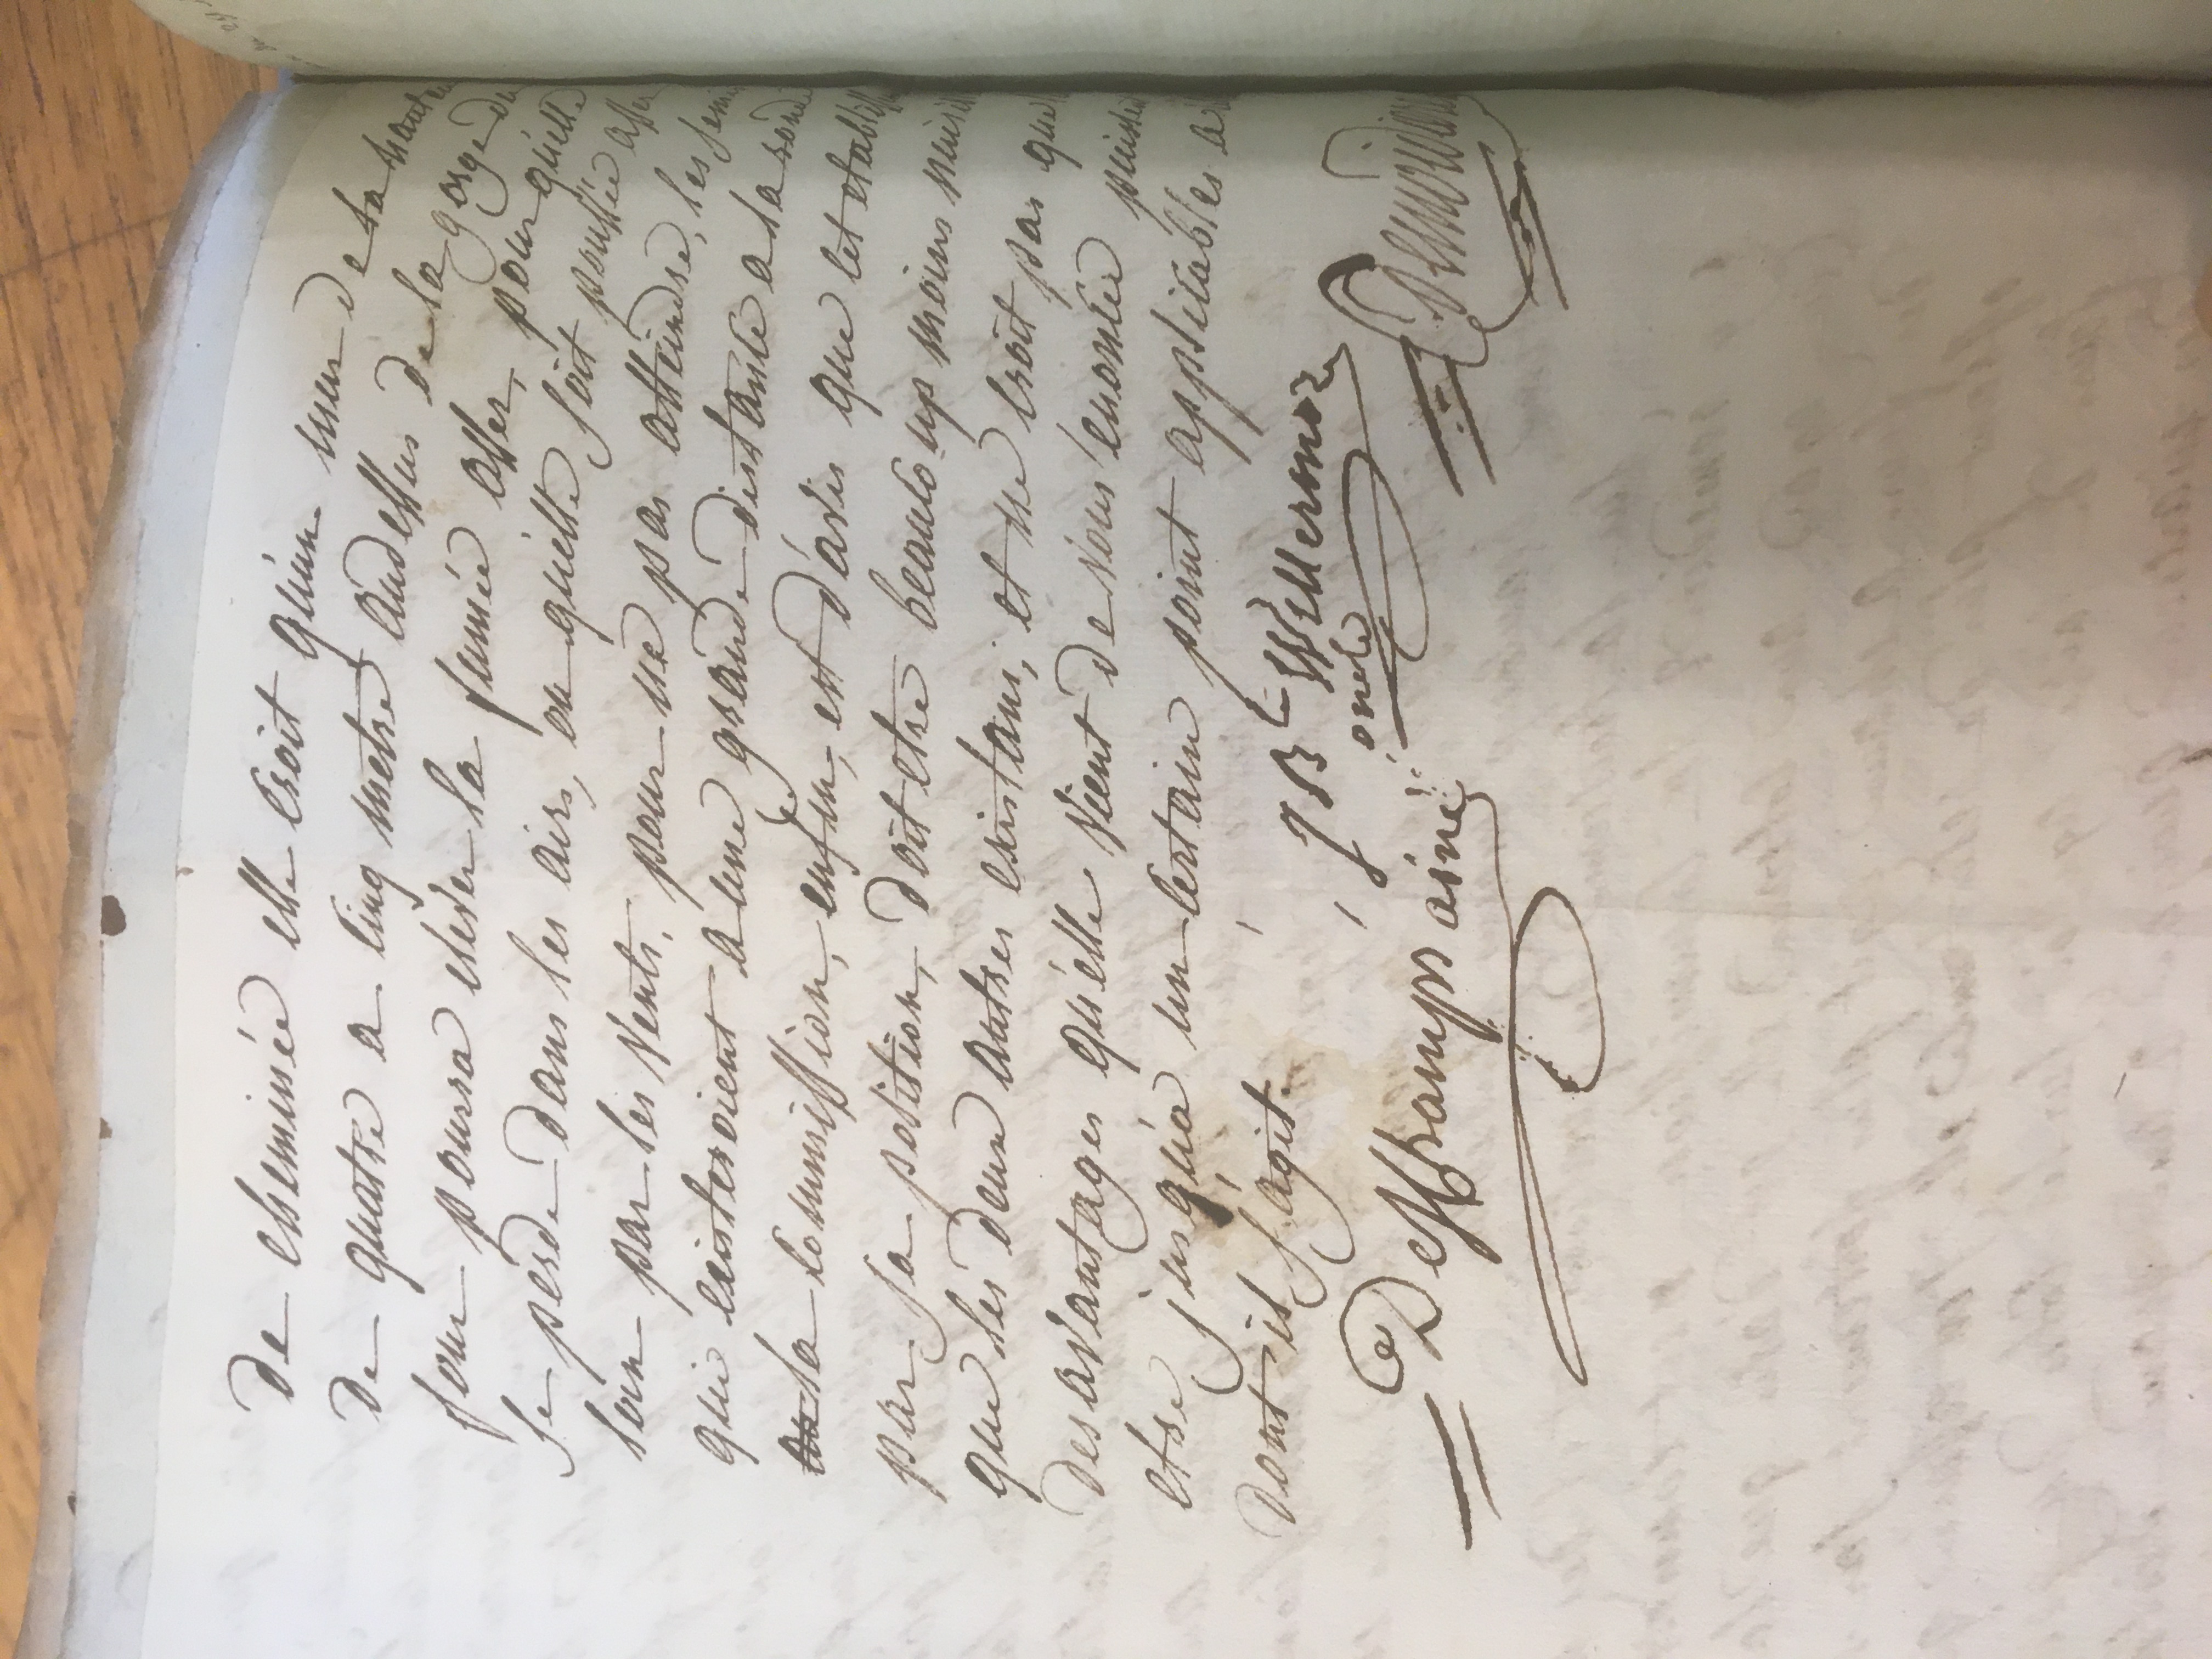 De cheminée elle croit qu'une de la hauteur
De quatre a cinq metre audessus de la gorge du
four poura elever la fumée asses, pour qu'elle
se perde dans les airs, ou qu'elle soit poussée asses
loin par les vents, pour ne pas atteindre, les
qui existeroient a une grande distance a la ronde
la commission, enfin, est d'avis que cet
par sa position, doit etre beaucoup moins
que les deux autres existans, et ne croit pas que
Desavantages qu'elle vient de vous enoncée
etre jusqu'a un certain point applicables a
Dont il s'agit.
J B Willermoz
oncle
Deschamps ainé